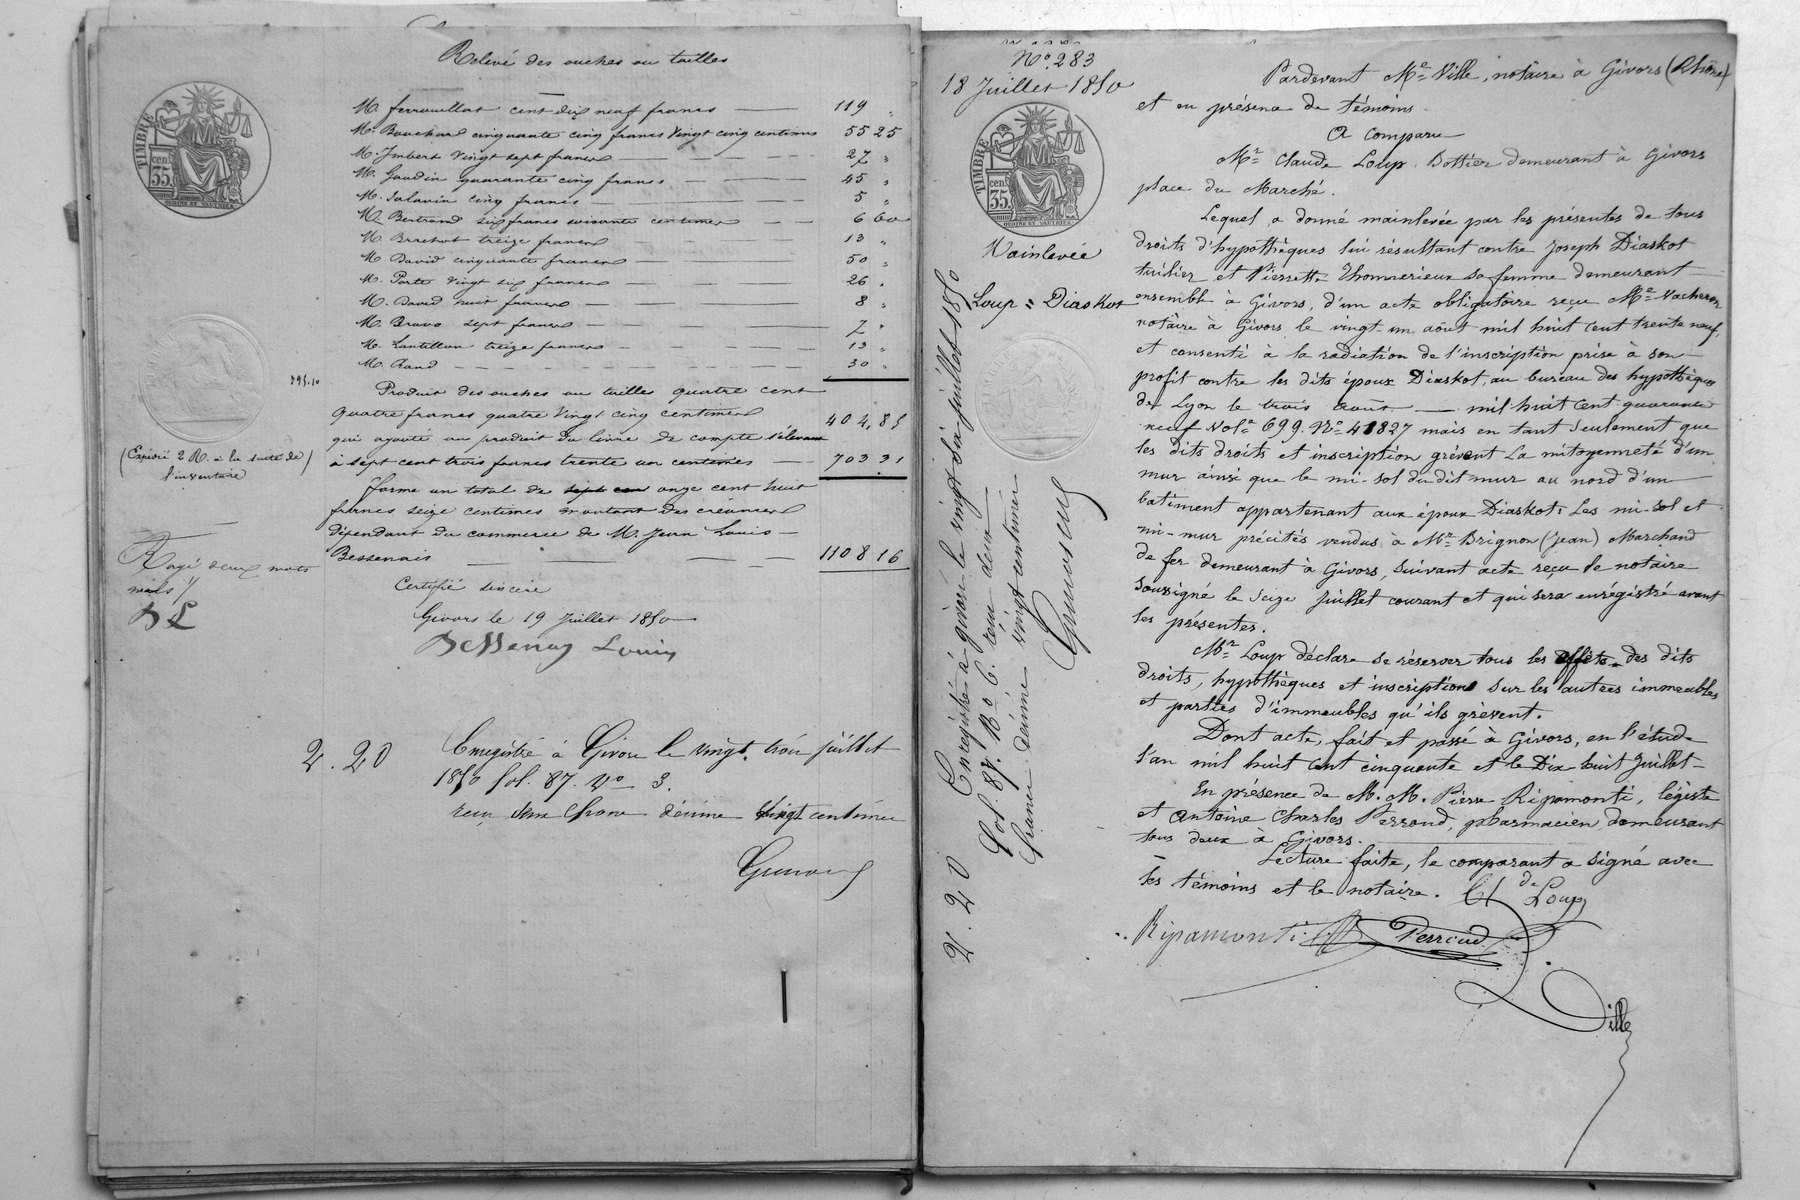 Relevé des ouches ou tailles
M. ferrouillat cent dix neuf francs 119 "
M. Bouchard cinquante cinq francs vingt cinq centimes 55 25
M. Imbert vingt sept francs 27 "
M. Goudin quarante cinq francs 45 "
M. Salavin cinq francs 5 "
M. Bertrand six francs soixante centimes 6 60
M. Brachot treize francs 13 "
M. David cinquante francs 50 "
M. Porte vingt six francs 26 "
M. David huit francs 8 "
M. Bravo sept francs 7 "
M. Lantillon treize francs 13 "
M. Rand 30 "
395.10
Produit des ouches ou tailles quatre cent
quatre francs quatre vingt cinq centimes 404,85
qui ajouté au produit du livre de compte s'élevant
à sept cent trois francs trente un centimes 703 31
forme un total de sept cen onze cent huit
francs seize centimes montant des créances
dépendant du commerce de M. Jean Louis
Bessenais 1108 16
(Expédié 2 R. à la suite de
l'inventaire)
Rayé deux mots
nuls
B L
Certifié sincère
Givors le 19 Juillet 1850
Bessenay Louis
2.20
Enregistré à Givors le vingt trois juillet
1850 fol. 87. Vo 3.
reçu deux francs décime vingt centimes
TIMBRE
cent
35.
N° 283
18 Juillet 1850
TIMBRE
cent
35.
Mainlevée
Loup = Diaskot
Enregistré à givors le vingt six juillet 1850
fol. 87. Ro C. reçu deux
francs décime vingt centimes
2.20
Pardevant Me Ville, notaire à Givors (Rhône)
et en présence de témoins
A Comparu
Mr Claude Loup Bottier demeurant à Givors
place du Marché.
Lequel a donné mainlevée par les présentes de tous
droits d'hypothèques lui résultant contre Joseph Diaskot
tuilier et Pierrette Thommerieux sa femme demeurant
ensemble à Givors, d'un acte obligatoire reçu Me Vacheron
notaire à Givors le vingt un août mil huit cent trente neuf,
et consenti à la radiation de l'inscription prise à son
profit contre les dits époux Diaskot, au bureau des hypothèques
de Lyon le trois août mil huit cent quarante
neuf Vole 699. No 41827 mais en tant seulement que
les dits droits et inscription grèvent la mitoyenneté d'un
mur ainsi que le mi-sol du dit mur au nord d'un
batiment appartenant aux époux Diaskot. Les mi-sol et
mi-mur précités vendus à Mr Brignon (Jean) Marchand
de fer demeurant à Givors, suivant acte reçu le notaire
soussigné le seize Juillet courant et qui sera enrégistré avant
les présentes.
Mr Loup déclare se réserver tous les effets des dits
droits, hypothèques et inscriptions sur les autres immeubles
et parties d'immeubles qu'ils grèvent.
Dont acte, fait et passé à Givors, en l'étude
l'an mil huit cent cinquante et le Dix huit Juillet
En présence de M. M. Pierre Ripamonti, légiste
et Antoine Charles Perroud, pharmacien demeurant
tous deux à Givors.
Lecture faite, le comparant a signé avec
les témoins et le notaire. Cl de Loup
Ripamonti Perroud
Ville